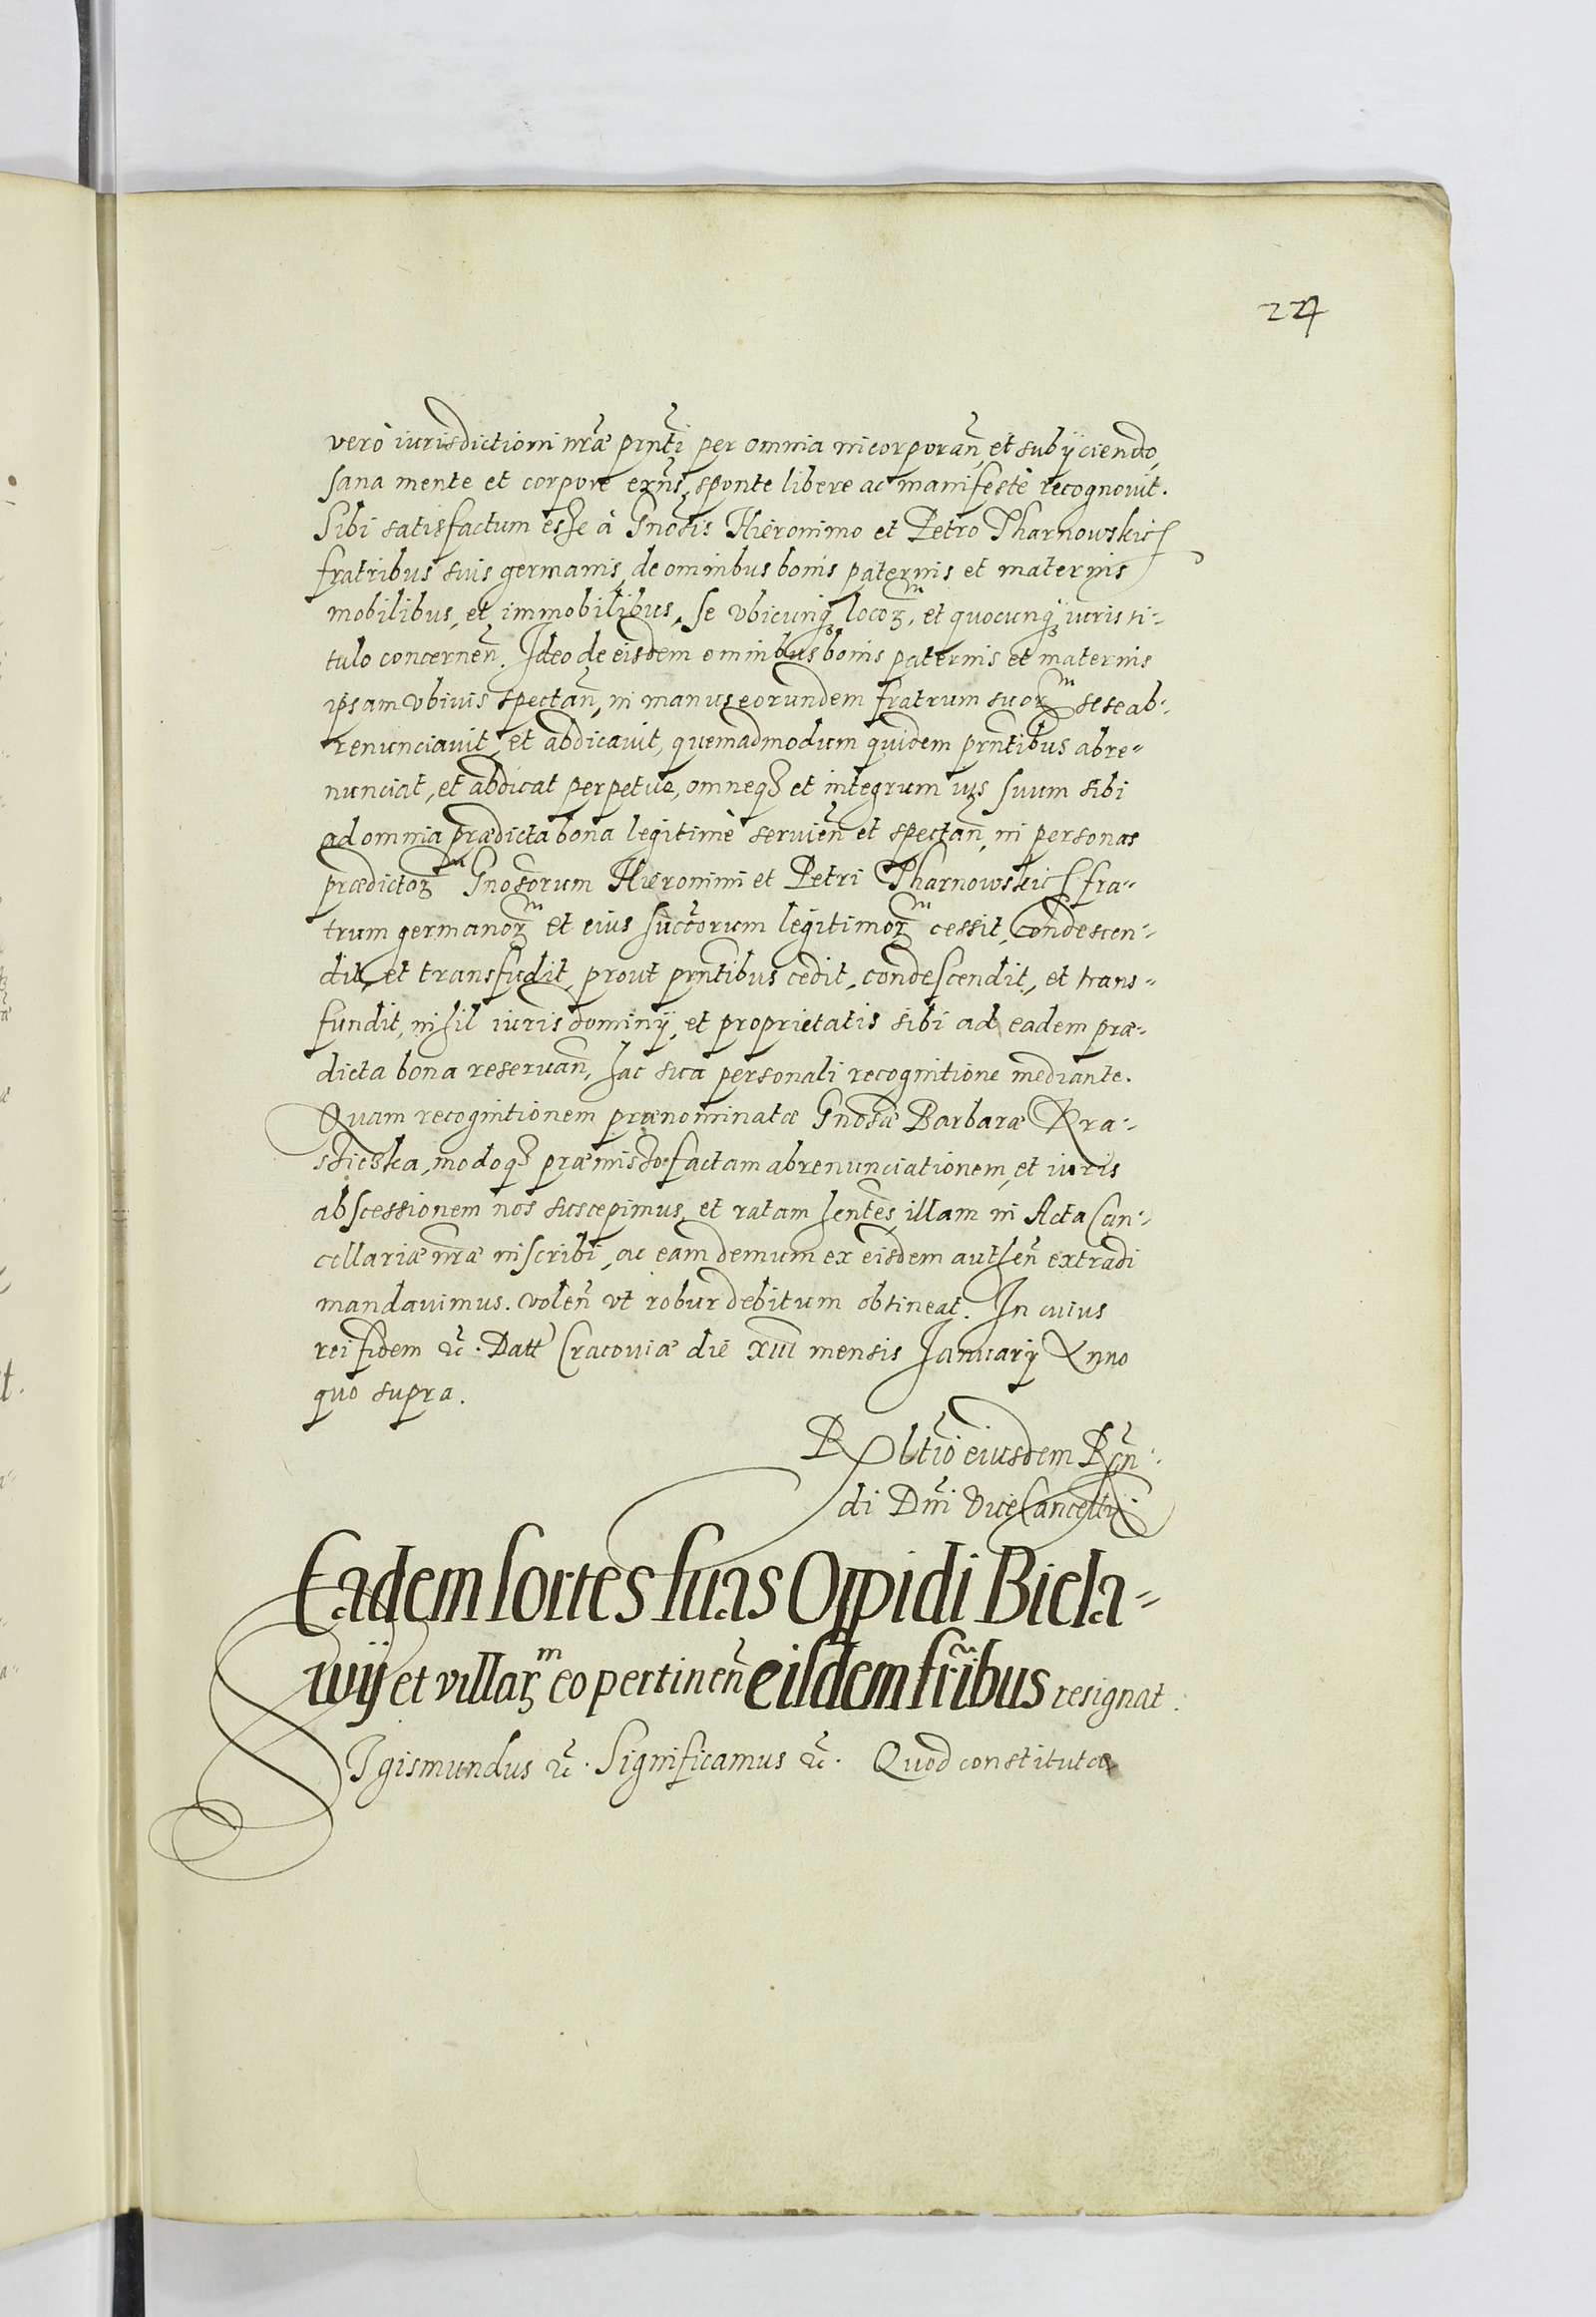 224
vero iurisdictioni nr̃æ prñti per omnia incorporañ, et subijciendo,
sana mente et corpore exñs, sponte libere ac manifestè recognouit.
Sibi satisfactum esse à Gnosis Hieronimo et Petro Tharnowskic
fratribus suis germanis, de omnibus bonis paternis et maternis
mobilibus, et immobilibus, se vbicunqꝫ locoꝝm, et quocunqꝫ iuris ti-
tulo concerneñ. Ideo de eisdem omnibus bonis paternis et maternis
ipsam vbiuis spectañ, in manus eorundem fratrum suoꝝm sese ab-
renunciauit, et abdicauit, quemadmodum quidem prñtibus abre-
nunciat, et abdicat perpetue, omneqꝫ et integrum ius suum sibi
ad omnia prædicta bona legitimè seruieñ et spectañ, in personas
prædictoꝝm Gnosorum Hieronimi et Petri Tharnowskic fra-
trum germanoꝝm et eius suc̃torum legitimoꝝm cessit, condescen-
dit, et transfudit, prout prñtibus cedit, condescendit, et trans-
fundit, nihil iuris dominij, et proprietatis sibi ad eadem præ-
dicta bona reseruañ, hac sua personali recognitione mediante.
Quam recognitionem prænominatæ Gnosæ Barbaræ Kra-
sickska, modoqꝫ præmisso factam abrenunciationem, et iuris
abscessionem nos suscepimus, et ratam hentes, illam in Acta Can-
cellariæ nr̃æ inscribi, ac eam demum ex eisdem autheñ extradi
mandauimus. voleñ vt robur debitum obtineat. In cuius
rei fidem ac̃. Datt Cracouiæ die XIII mensis Ianuarij Anno
quo supra.
Rltio eiusdem Rñ-
di Dñi ViceCancellij
Eadem sortes suas Oppidi Biela-
wij et villaꝝm eo pertineñ eisdem fr̃ibus resignat.
SIgismundus ac̃. Significamus ac̃. Quod constituta